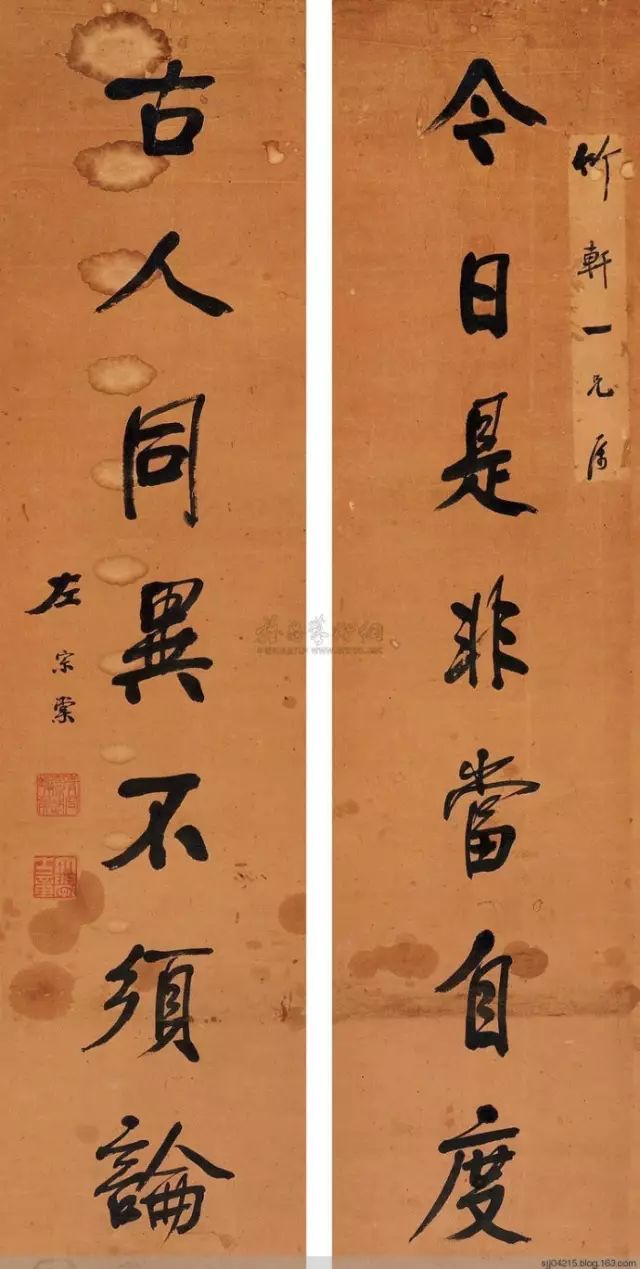 竹軒一兄屬
今日是非當自度
古人同異不須論
左宗棠
sjj04215.blog.163.com